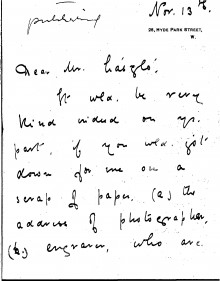 Nov. 13th
publishing
26, HYDE PARK STREET,
W.
Dear Mr. László,
It wld. be very
kind indeed on yr.
part, if you wld. jot
down for me on a
scrap of paper, (a) the
address of photographer,
(b) engraver, who are